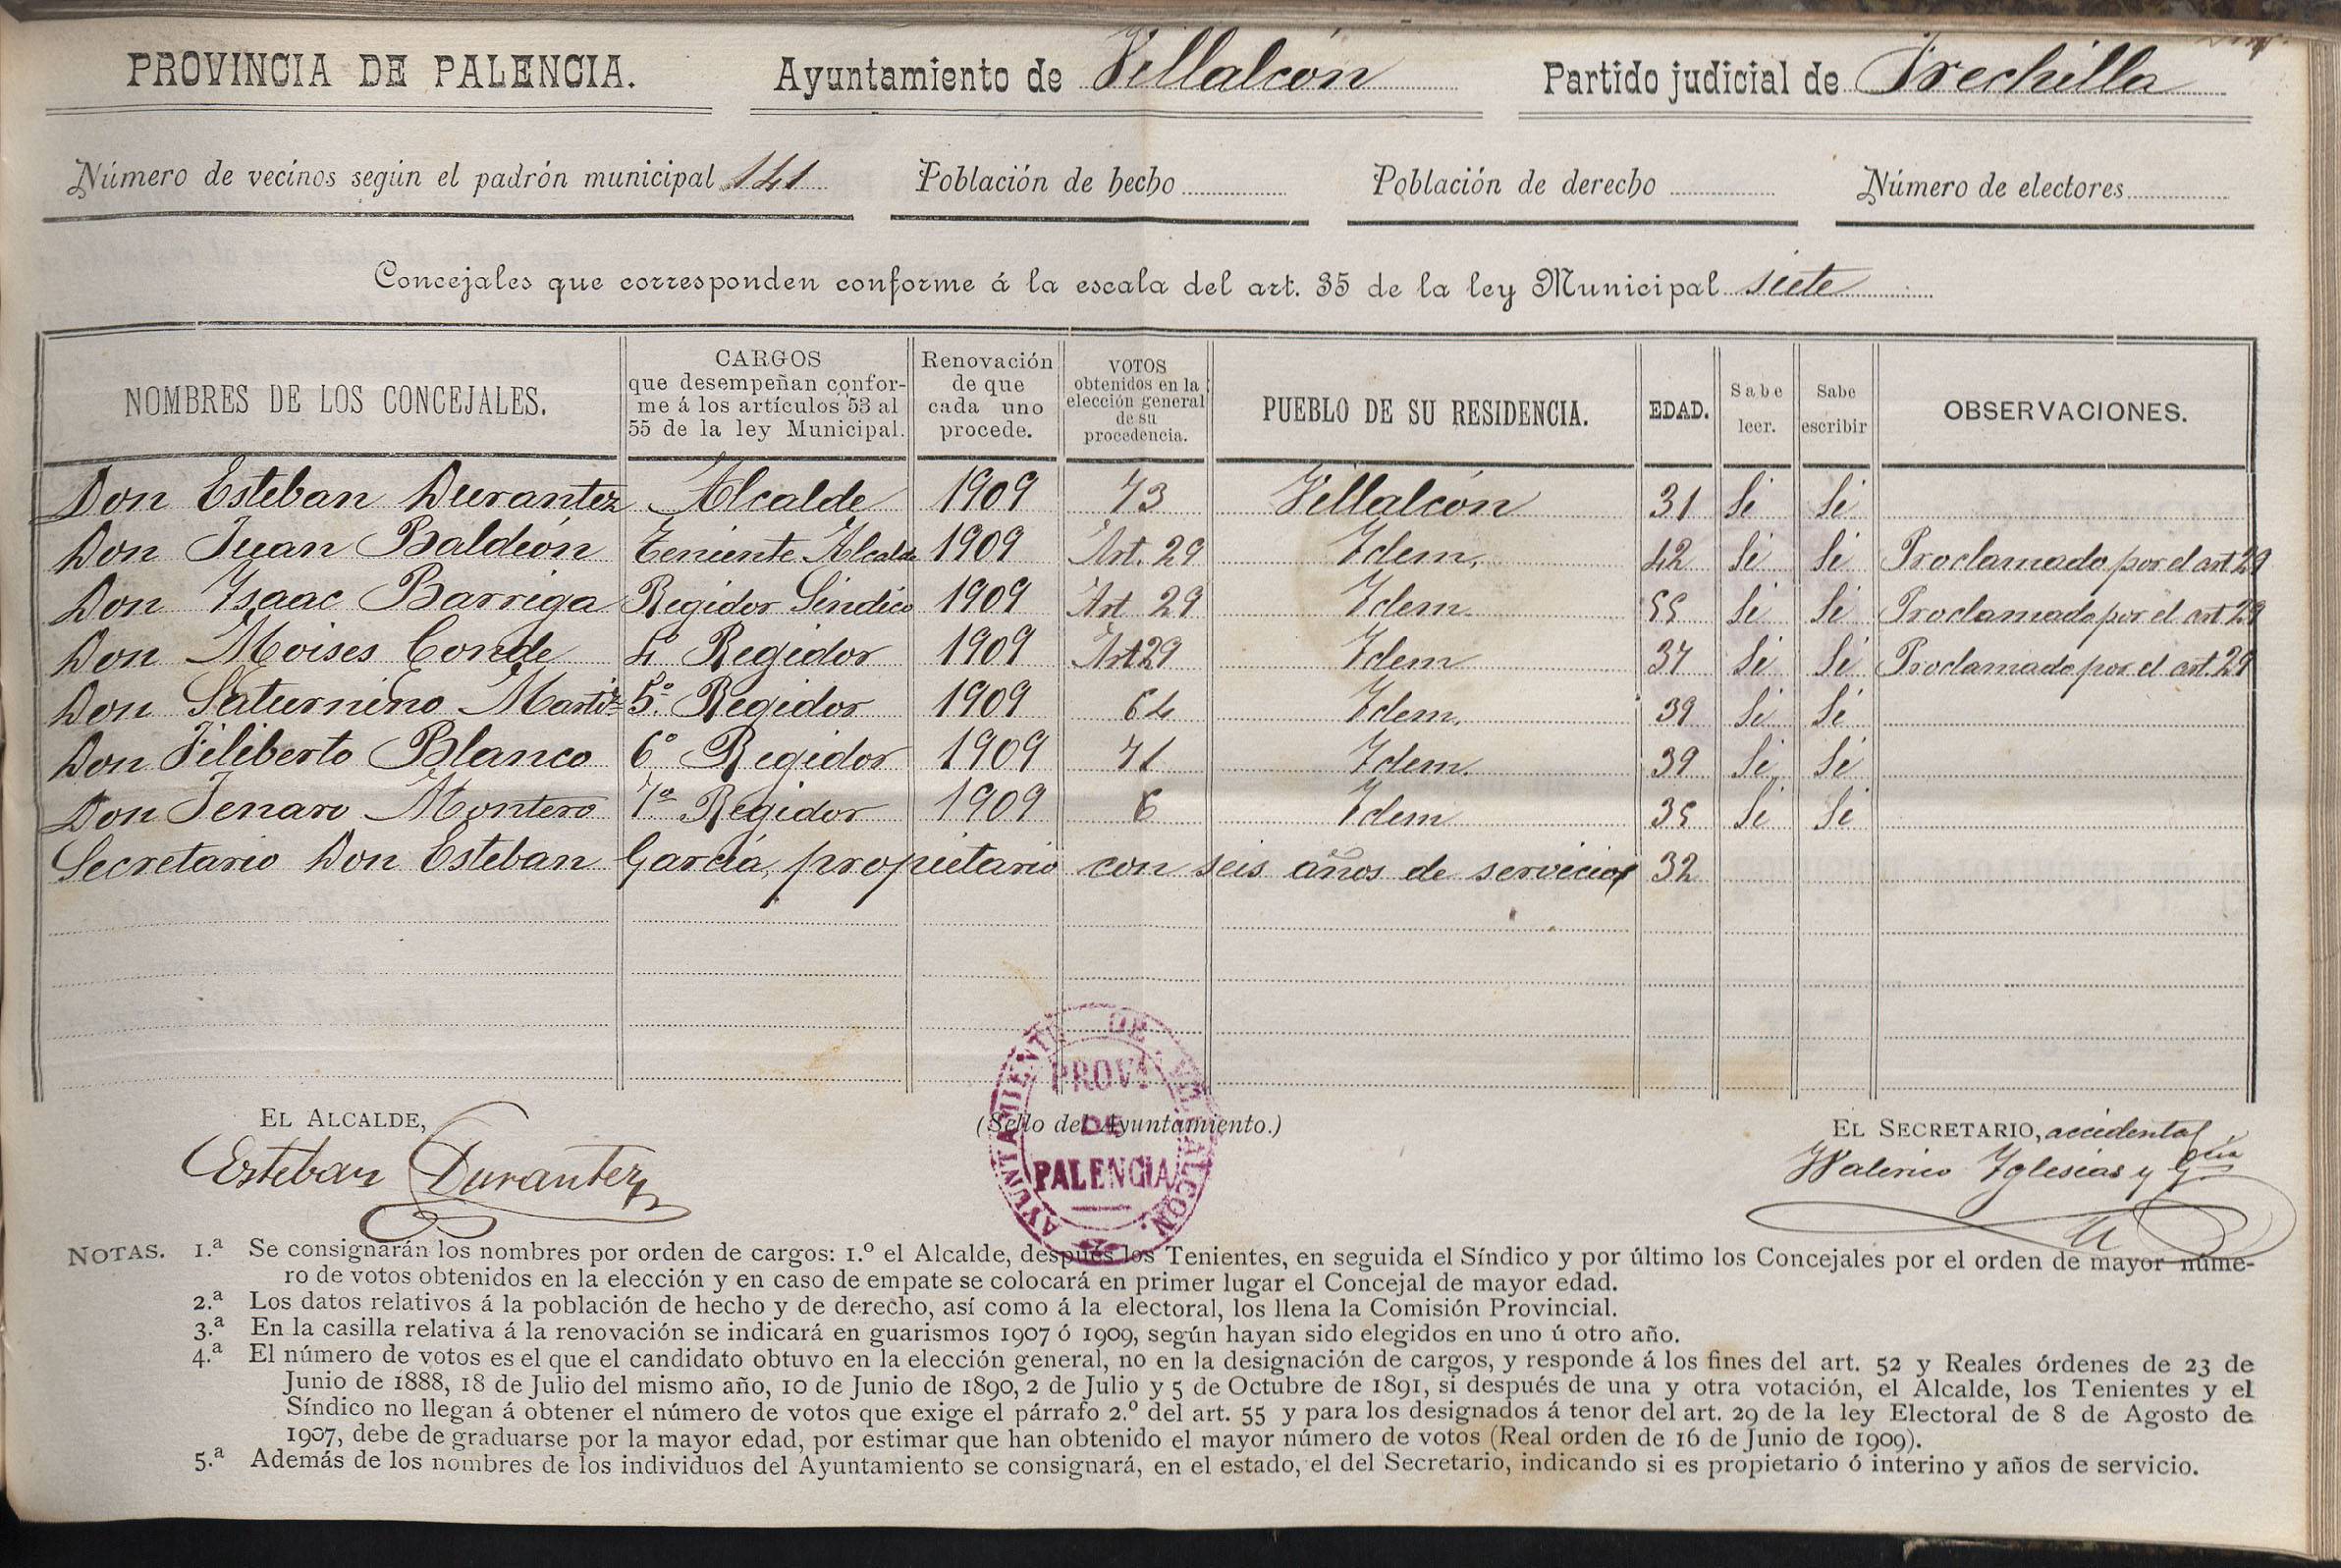 PROVINCIA DE PALENCIA. Ayuntamiento de Villalcón Partido judicial de Frechilla
Número de vecinos según el padrón municipal 141 Población de hecho Población de derecho Número de electores
Concejales que corresponden conforme á la escala del art. 35 de la ley Municipal siete
NOMBRES DE LOS CONCEJALES.
CARGOS
que desempeñan confor-
me á los artículos 53 al
55 de la ley Municipal.
Renovación
de que
cada uno
procede.
VOTOS
obtenidos en la
elección general
de su
procedencia.
PUEBLO DE SU RESIDENCIA.
EDAD.
Sabe
leer.
Sabe
escribir
OBSERVACIONES.
Don Esteban Durantez Alcalde 1909 73 Villalcón 31 Si Si
Don Juan Baldeón Teniente Alcalde 1909 Art. 29 Idem. 42 Si Si Proclamado por el art 29
Don Isaac Barriga Regidor Sindico 1909 Art 29 Idem. 55 Si Si Proclamado por el art 29
Don Moises Conde 4º Regidor 1909 Art 29 Idem 37 Si Si Proclamado por el art. 29
Don Saturnino Martiz 5º Regidor 1909 64 Idem. 39 Si Si
Don Filiberto Blanco 6º Regidor 1909 71 Idem. 39 Si Si
Don Jenaro Montero 7º Regidor 1909 6 Idem 35 Si Si
Secretario Don Esteban García, propietario con seis años de servicios 32
EL ALCALDE,
Esteban Durantez
(Sello del Ayuntamiento.)
AYUNTAMIENTO DE VILLALCON.
PROVª
DE
PALENCIA
EL SECRETARIO, accidental
Walerico Yglesias y
NOTAS. 1.ª Se consignarán los nombres por orden de cargos: 1.º el Alcalde, después los Tenientes, en seguida el Síndico y por último los Concejales por el orden de mayor núme-
ro de votos obtenidos en la elección y en caso de empate se colocará en primer lugar el Concejal de mayor edad.
2.ª Los datos relativos á la población de hecho y de derecho, así como á la electoral, los llena la Comisión Provincial.
3.ª En la casilla relativa á la renovación se indicará en guarismos 1907 ó 1909, según hayan sido elegidos en uno ú otro año.
4.ª El número de votos es el que el candidato obtuvo en la elección general, no en la designación de cargos, y responde á los fines del art. 52 y Reales órdenes de 23 de
Junio de 1888, 18 de Julio del mismo año, 10 de Junio de 1890, 2 de Julio y 5 de Octubre de 1891, si después de una y otra votación, el Alcalde, los Tenientes y el
Síndico no llegan á obtener el número de votos que exige el párrafo 2.º del art. 55 y para los designados á tenor del art. 29 de la ley Electoral de 8 de Agosto de
1907, debe de graduarse por la mayor edad, por estimar que han obtenido el mayor número de votos (Real orden de 16 de Junio de 1909).
5.ª Además de los nombres de los individuos del Ayuntamiento se consignará, en el estado, el del Secretario, indicando si es propietario ó interino y años de servicio.